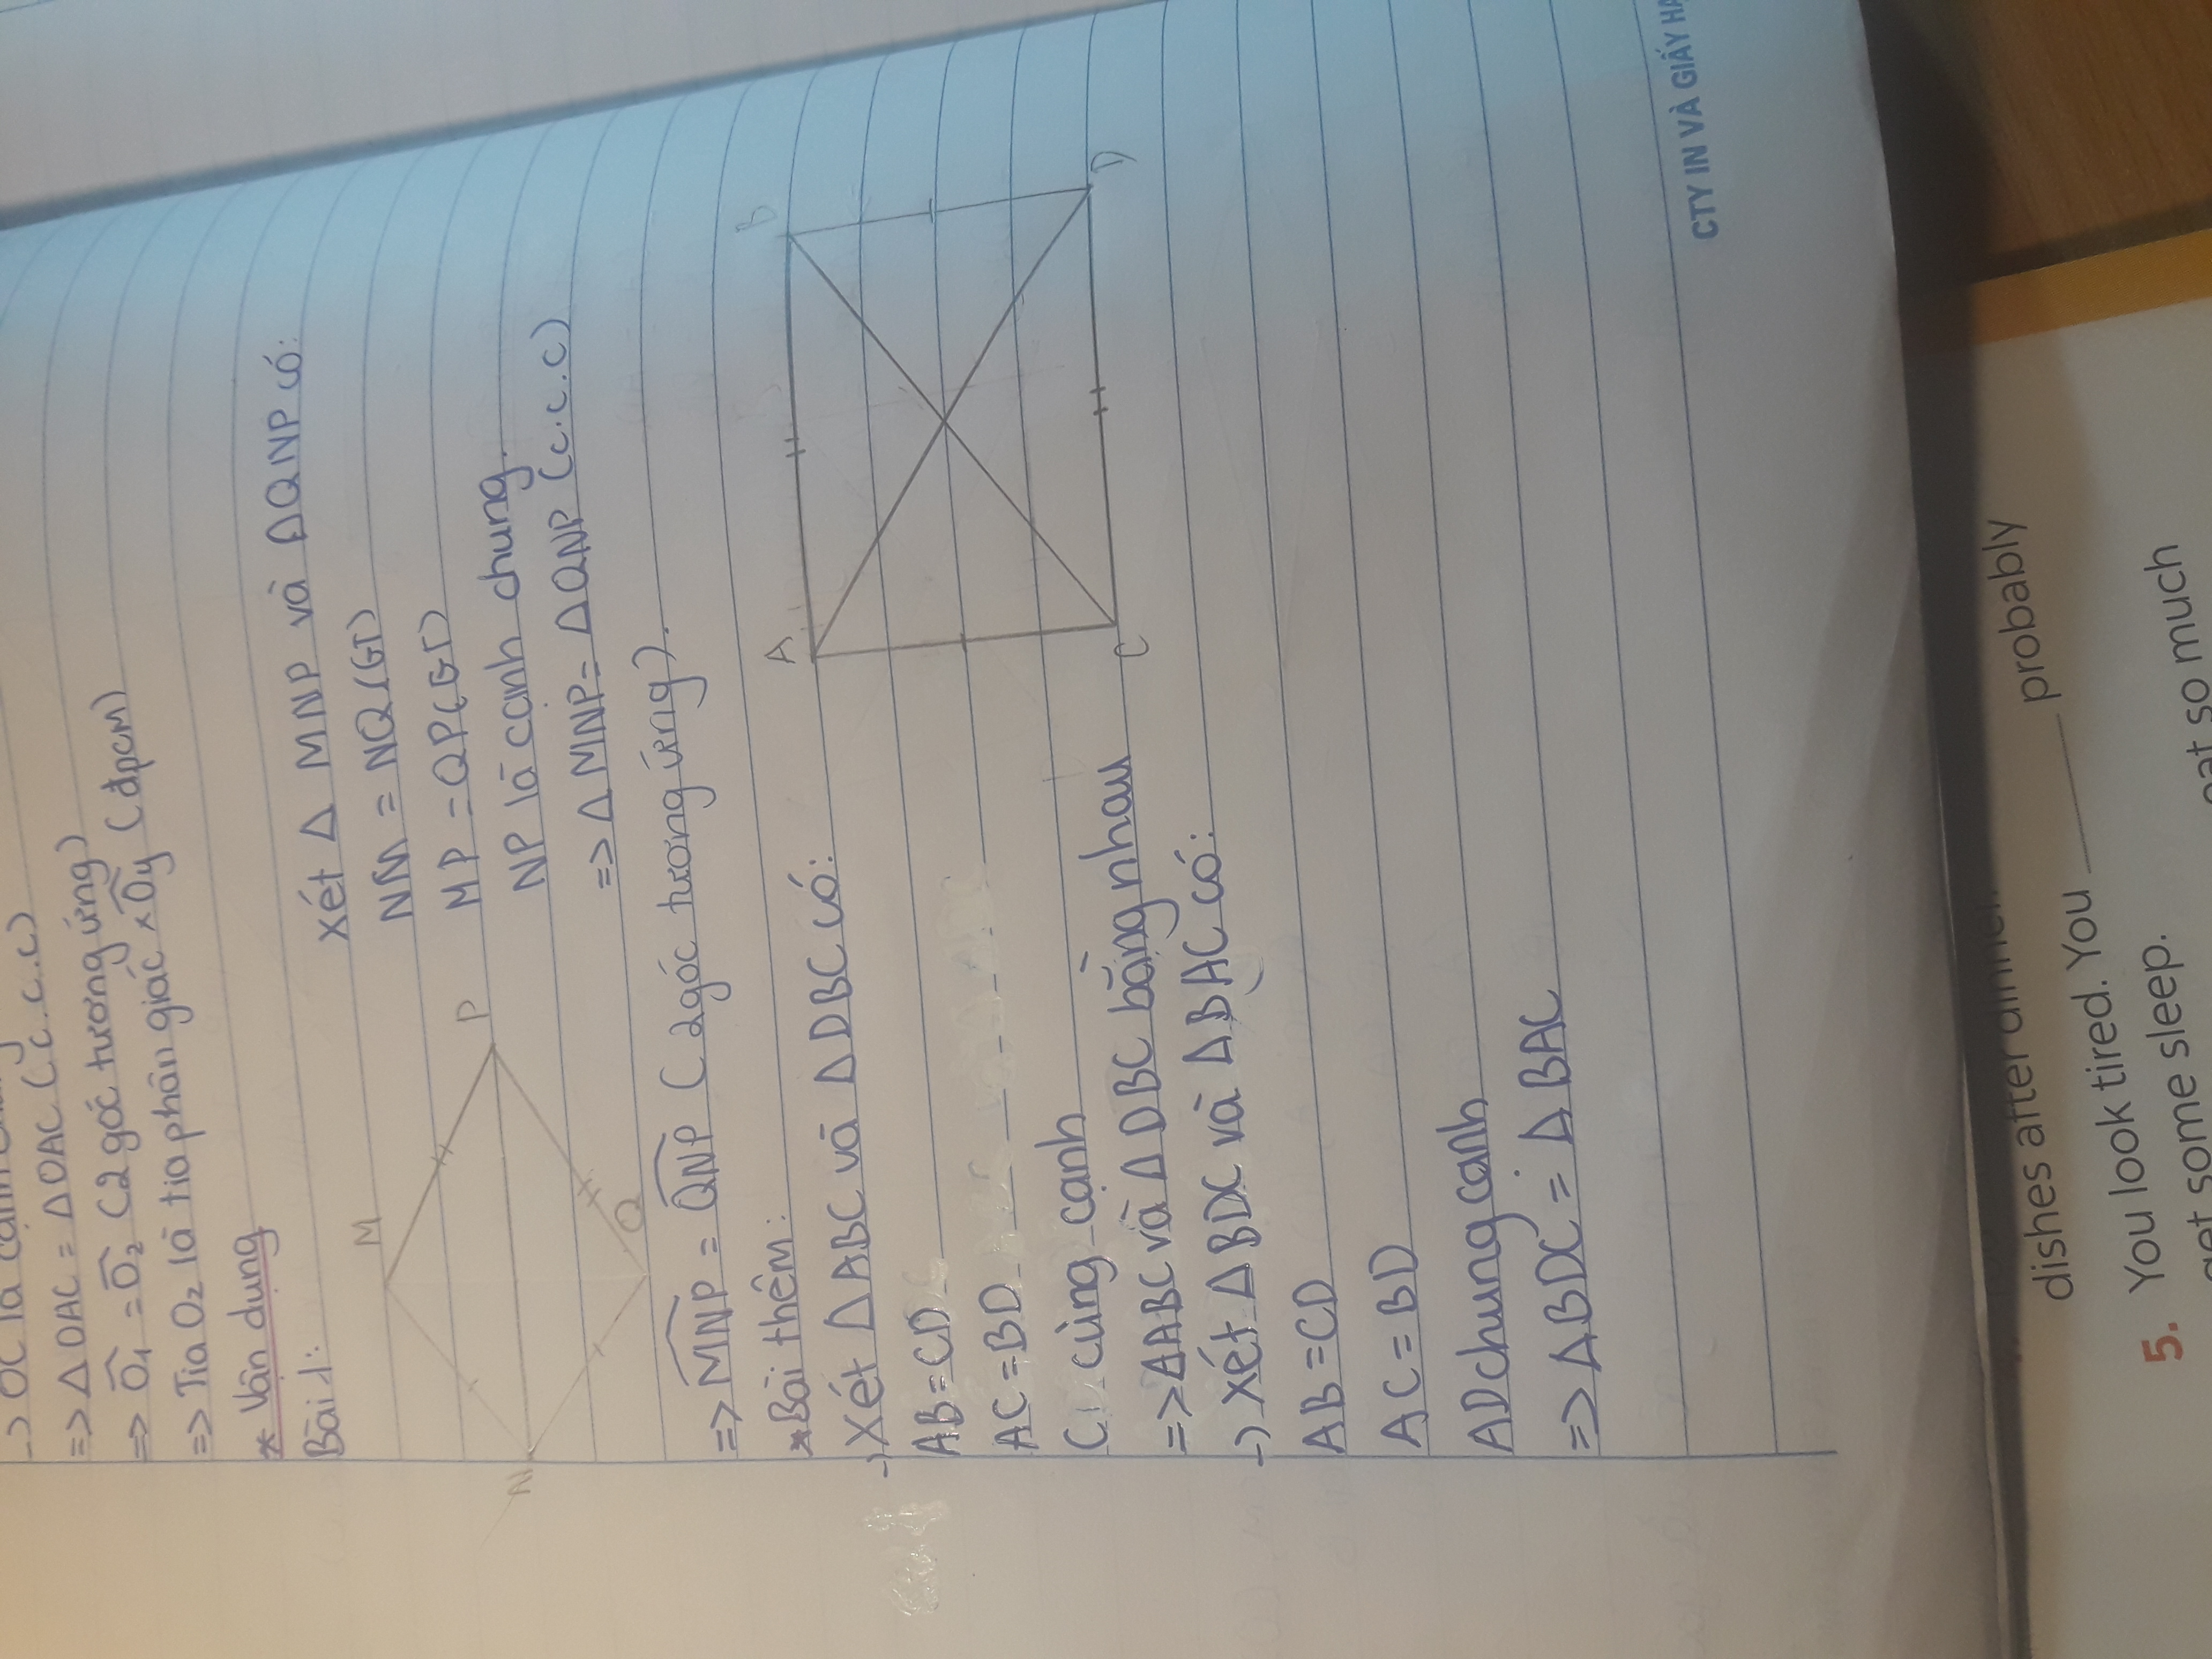 -> OC là cạnh
=> Δ OAC = Δ OAC (c.c.c)
=> Ô₁ = Ô₂ (2 góc tương ứng)
=> Tia Oz là tia phân giác xOy (đpcm)
* Vận dụng
Bài 1:
Xét Δ MNP và ΔQNP có:
NM = NQ (GT)
MP = QP (GT)
NP là cạnh chung.
=> Δ MNP = Δ QNP (c.c.c)
M
P
N
Q
=> MNP = QNP (2 góc tương ứng).
* Bài thêm:
-> Xét Δ ABC và Δ DBC có:
AB = CD
AC = BD
cùng cạnh
=> ΔABC và Δ DBC bằng nhau
-> Xét Δ BDC và Δ BAC có:
AB = CD
AC = BD
AD chung cạnh
=> Δ BDC = Δ BAC
A
B
C
D
CTY IN VÀ GIẤY
dishes after dinner.
5. You look tired. You ____ probably
get some sleep.
eat so much